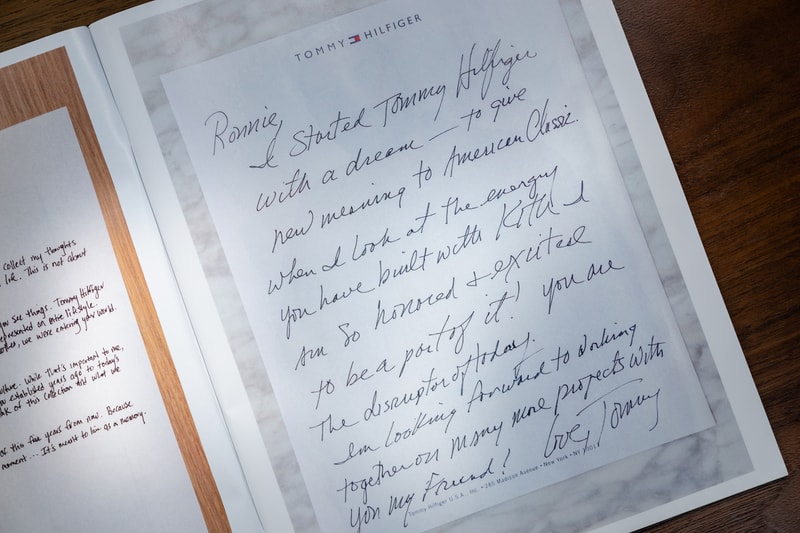 collect my thoughts
life. This is not about
you see things. Tommy Hilfiger
represented an entire lifestyle.
we were entering your world.
culture. While that's important to me,
you established years ago to today's
of this collection and what we
this five years from now. Because
moment... It's meant to live as a memory.
TOMMY HILFIGER
Ronnie,
I Started Tommy Hilfiger
with a dream — to give
new meaning to American Classic.
When I look at the energy
you have built with KITH I
am so honored & excited
to be a part of it! you are
The disruptor of today.
I'm looking forward to working
together on many more projects with
you my Friend! Love, Tommy
Tommy Hilfiger U.S.A., Inc. • 285 Madison Avenue • New York • NY